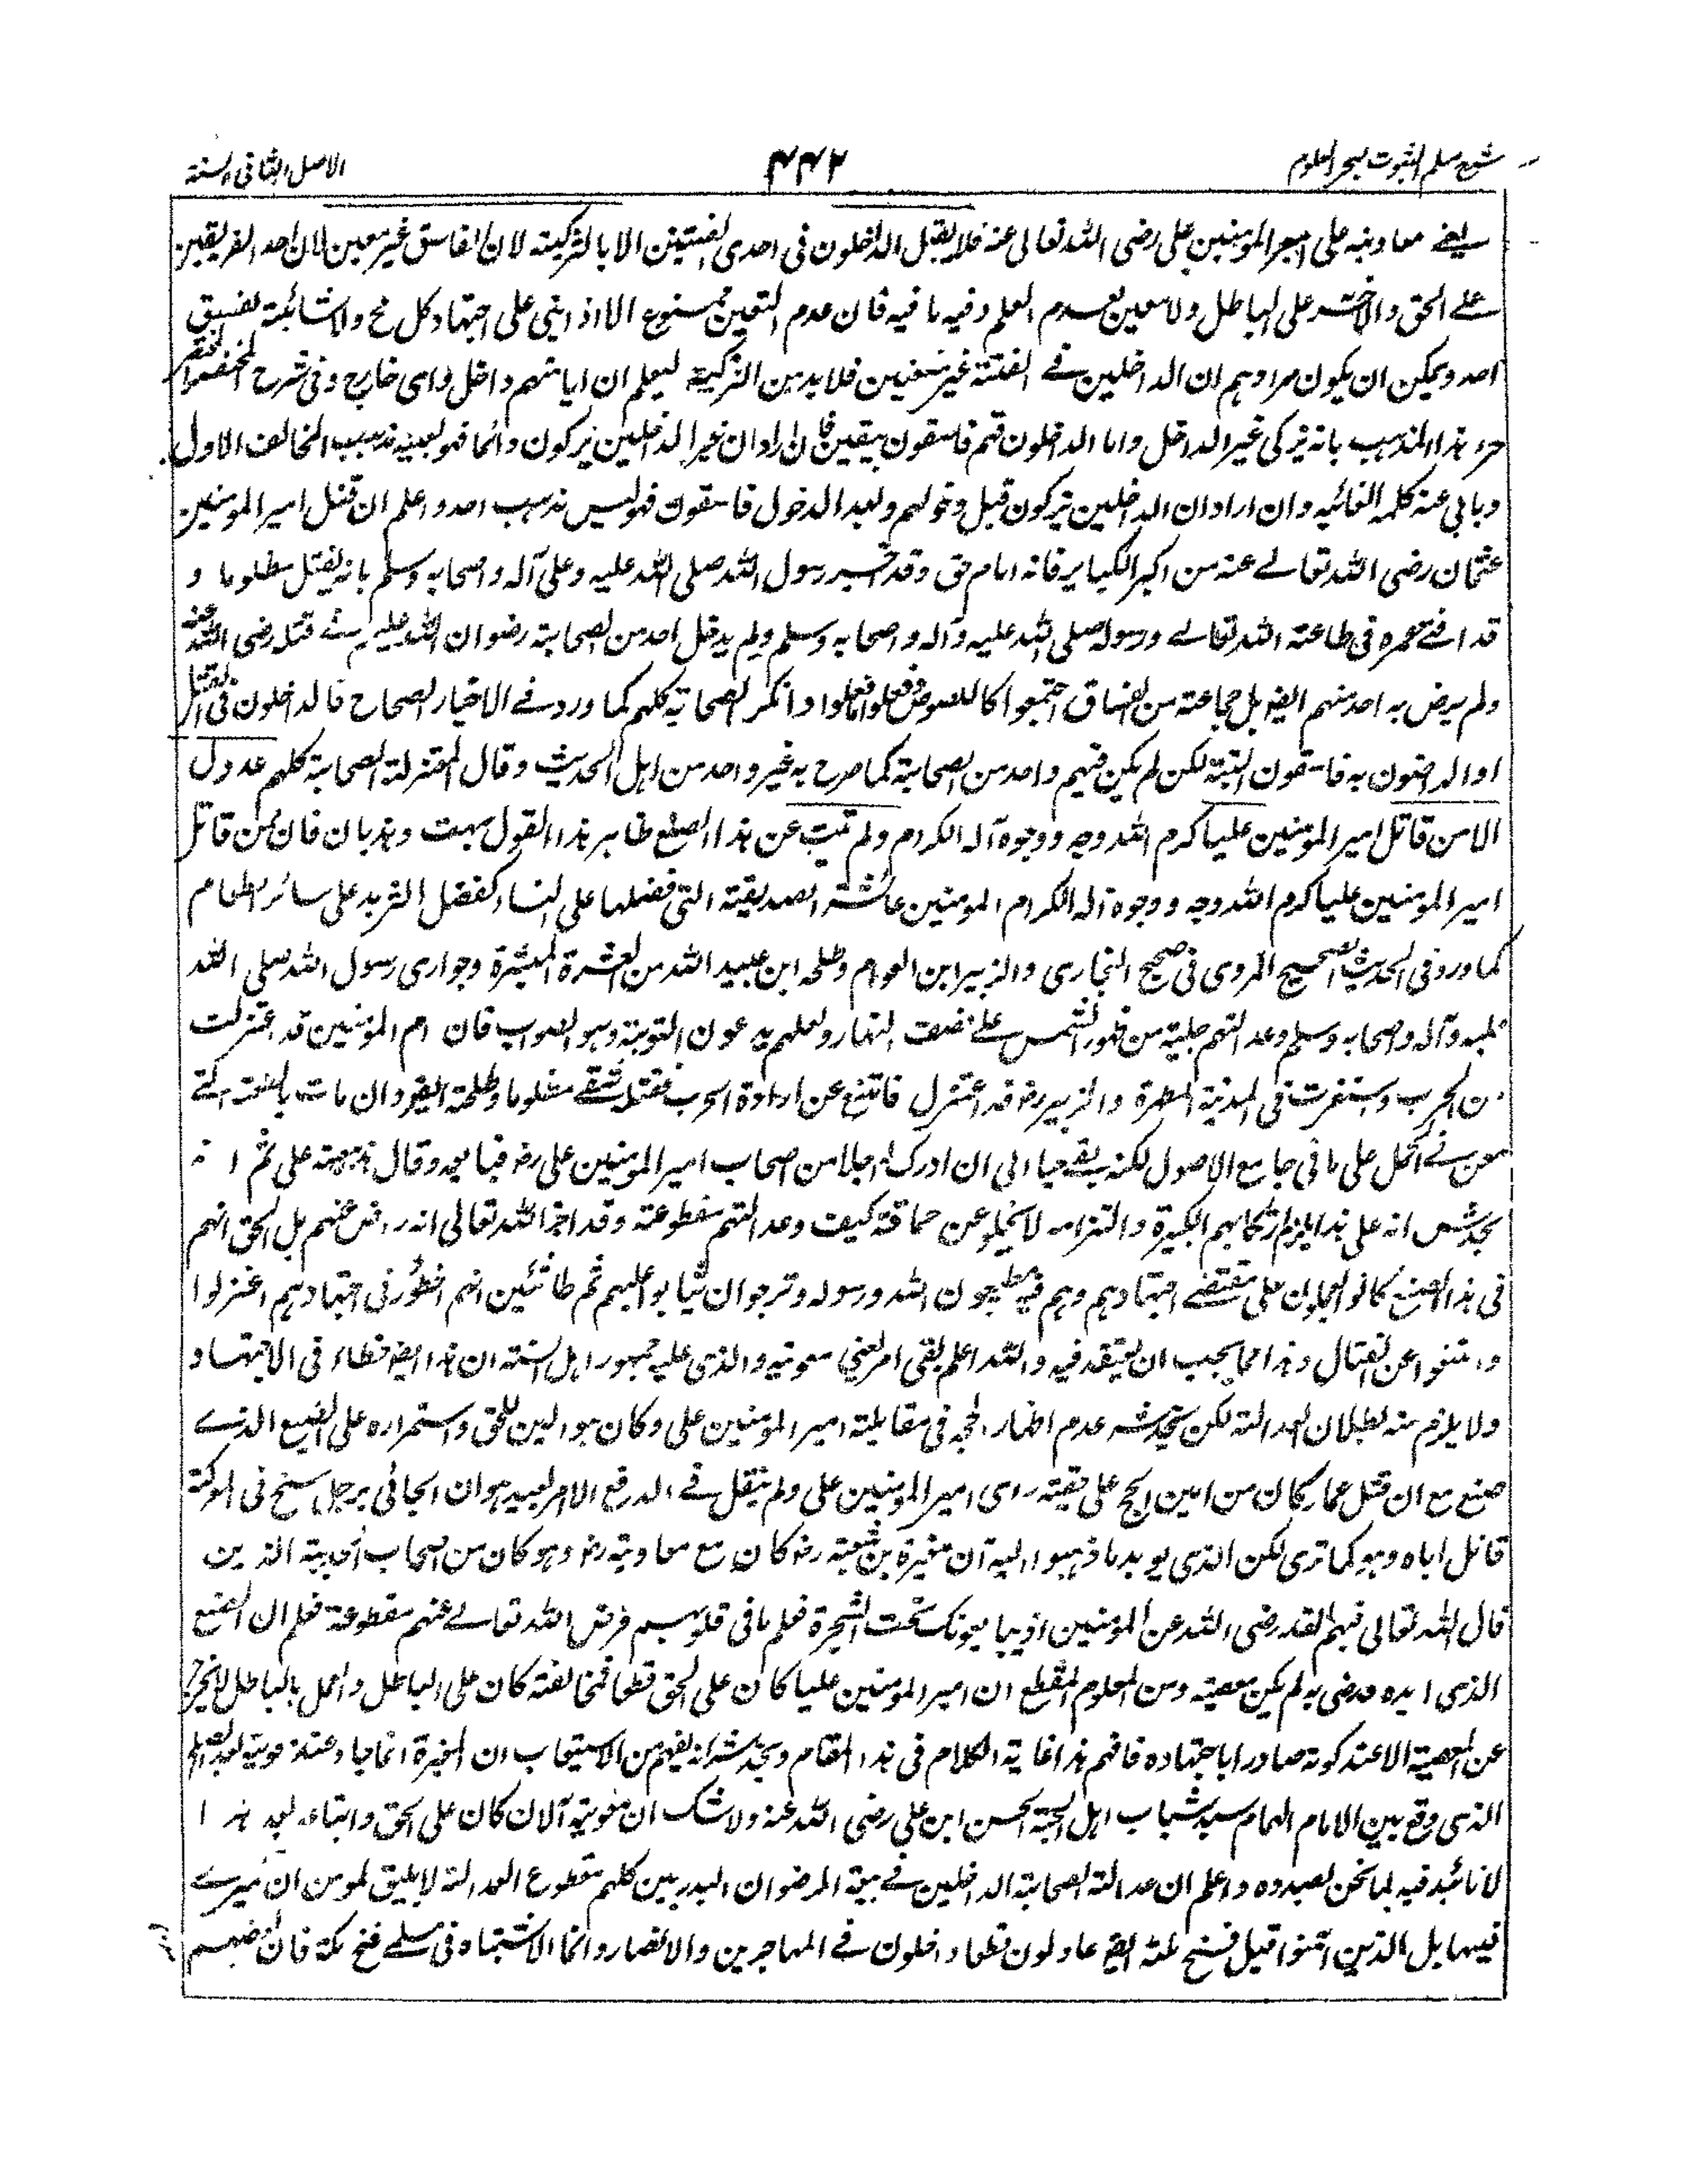 شرح مسلم الثبوت لبحر العلوم
۴۴۲
الاصل الثانی السنة
بغی معاویة علی امیر المومنین علی رضی الله تعالی عنه فلا یقبل الداخلون فی احدی الفئتین الا بالتزکیة لان الفاسق غیر معین لان احد الفریقین
علی الحق والآخر علی الباطل ولا معین لعدم العلم وفیه ما فیه فان عدم التعین ممنوع الا اذا بنی علی اجتهاد کل فح ولا شائبة لفسق
احد ویمکن ان یکون مرادهم ان الداخلین فی الفتنة غیر متعین فلا بد من التزکیة لیعلم ان ایا منهم داخل وای خارج وفی شرح المختصر
حرر هذا المذهب بانه یزکی غیر الداخل واما الداخلون فهم فاسقون بیقین فان اراد ان غیر الداخلین یزکون دائما فهو بعینه مذهب المخالف الاول
ویابی عنه کلمة الغائیة وان اراد ان الداخلین یزکون قبل دخولهم وبعد الدخول فاسقون فهو لیس مذهب احد واعلم ان قتل امیر المومنین
عثمان رضی الله تعالی عنه من اکبر الکبایر فانه امام حق وقد اخبر رسول الله صلی الله علیه وعلی آله واصحابه وسلم بانه یقتل مظلوما و
قد افنی عمره فی طاعة الله تعالی ورسوله صلی الله علیه وآله واصحابه وسلم ولم یدخل احد من الصحابة رضوان الله علیهم فی قتله رضی الله عنه
ولم یرض به احد منهم ایضا بل جماعة من الفساق اجتمعوا کاللصوص وفعلوا ما فعلوا وانکر الصحابة کلهم کما ورد فی الاخبار الصحاح فالداخلون فی القتل
او الراضون به فاسقون البتة لکن لم یکن فیهم واحد من الصحابة کما صرح به غیر واحد من اهل الحدیث وقال المعتزلة الصحابة کلهم عدول
الا من قاتل امیر المومنین علیا کرم الله وجهه ووجوه آله الکرام ولم تمب عن هذا الصنع ظاهر هذا القول بهت وهذیان فان ممن قاتل
امیر المومنین علیا کرم الله وجهه ووجوه آله الکرام ام المومنین عائشة الصدیقة التی فضلها علی النساء کفضل الثرید علی سائر الطعام
کما ورد فی الحدیث الصحیح المروی فی صحیح البخاری والزبیر ابن العوام وطلحة ابن عبید الله من العشرة المبشرة وحواری رسول الله صلی الله
علیه وآله واصحابه وسلم وعدالتهم جلیة من ظهور الشمس علی نصف النهار ولعلهم یدعون التوبة وهو الصواب فان ام المومنین قد اعتزلت
من الحرب واستقرت فی المدینة المطهرة والزبیر رض قد اعتزل فامتنع عن ارادة الحرب فقتل شقی مظلوما وطلحة ایضا وان مات بالضغتة التی
طعن فی الجمل علی ما فی جامع الاصول لکنه بقی حیا الی ان ادرک رجلا من اصحاب امیر المومنین علی رض فبایعه وقال هذه بیعة علی ثم انه
یخدش انه علی هذا یلزم ارتکابهم الکبیرة والتزامه لا یخلو عن حماقة کیف وعدالتهم مقطوعة وقد اخبر الله تعالی انه رضی عنهم بل الحق انهم
فی هذا الصنع کانوا عاملون علی مقتضی اجتهادهم وهم فیه مطیعون الله ورسوله وترجوا ان یثابوا علیهم ثم ظانین انهم اخطؤا فی اجتهادهم اعتزلوا
وامتنعوا عن القتال وهذا مما یجب ان یعتقد فیه والله اعلم بقی امر بغی معویة والذی علیه جمهور اهل السنة ان هذا ایضا خطاء فی الاجتهاد
ولا یلزم منه بطلان العدالة لکن یخدشه عدم اظهار الحجة فی مقابلة امیر المومنین علی وکان هو الین للحق واستمراره علی الصنیع الذی
صنع مع ان قتل عمار کان من ابین الحجج علی حقیة رای امیر المومنین علی ولم ینقل فی الدفع الا امر بعید هو ان الجائی برجل شیخ فی المعرکة
قاتل ایاه وهو کما تری لکن الذی یوید ما ذهبوا الیه ان مغیرة بن شعبة رض کان مع معاویة رض وهو کان من اصحاب البیعة الذین
قال الله تعالی فیهم لقد رضی الله عن المومنین اذ یبایعونک تحت الشجرة فعلم ما فی قلوبهم فرضی الله تعالی عنهم مقطوعة فعلم ان الصنع
الذی ایده ورضی به لم یکن معصیة ومن المعلوم المقطع ان امیر المومنین علیا کان علی الحق قطعا فمخالفته کان علی الباطل والعمل بالباطل لا یخرج
عن المعصیة الا عند کونه صادرا باجتهاده فافهم هذا غایة الکلام فی هذا المقام ویخدشه انه یفهم من الاستیعاب ان المغیرة انما جاء عند معویة بعد الصلح
الذی وقع بین الامام الهمام سید شباب اهل الجنة الحسن ابن علی رضی الله عنه ولا شک ان معویة الآن کان علی الحق واتباعه بعد هذا
لا تائید فیه لما نحن بصدده واعلم ان عدالة الصحابة الداخلین فی بیعة الرضوان والبدریین کلهم مقطوع العدالة لا یلیق لمومن ان یمتری
فیها بل الذین آمنوا قبل فتح مکة ایضا عادلون قطعا داخلون فی المهاجرین والانصار وانما الاشتباه فی مسلمی فتح مکة فان بعضهم